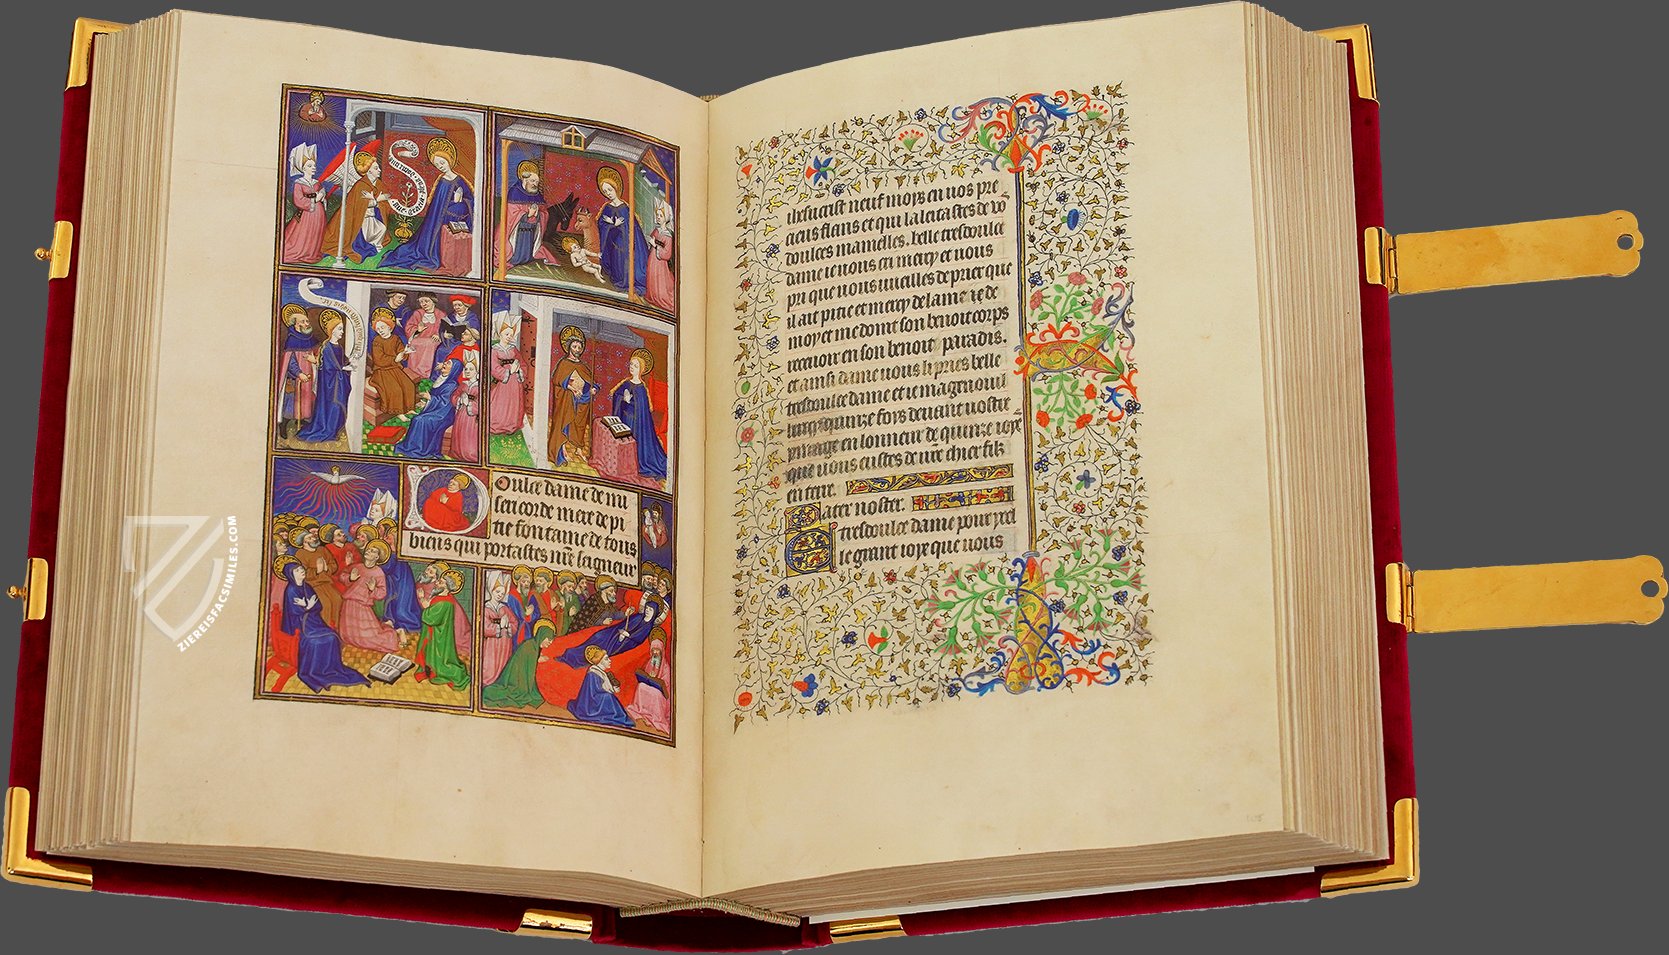 Oulce dame de mi
sericorde mere de pi
tie fontaine de tous
biens qui portastes nre seigneur
ihesucrist neuf moys en vos pre
cieus flans et qui lalaitastes de vo
doulces mamelles. belle tresdoulce
dame ie vous cri mercy et vous
pri que vous vueilles deprier que
il ait pitie et mercy de lame de
moy et me doint son benoit corps
recevoir en son benoit paradis.
et ainsi dame vous li pries belle
tresdoulce dame et ie magenouil
quinze foys devant vostre
ymage en lonneur de quinze ioye
que vous eustes de vre chier filz
en terre.
Pater noster.
E tresdoulce dame pour icel
le grant ioye que vous
ZIEREISFACSIMILES.COM